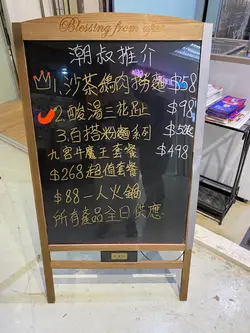 Blessing from
潮叔推介
1.沙茶鵝肉撈麵$58
2.酸湯三花趾 $98
3.百搭粉麵系列
九宮牛魔王套餐 $498
$268超值套餐
$88一人火鍋
所有產品全日供應